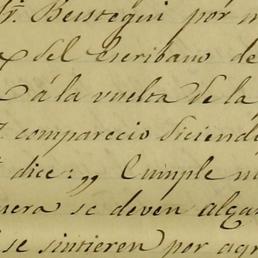 Sr. Beistegui por m
del escribano de
á la vuelta de la
comparecio diciend
dice: „ Cumple m
uera se deven alga
se sintieren por agr